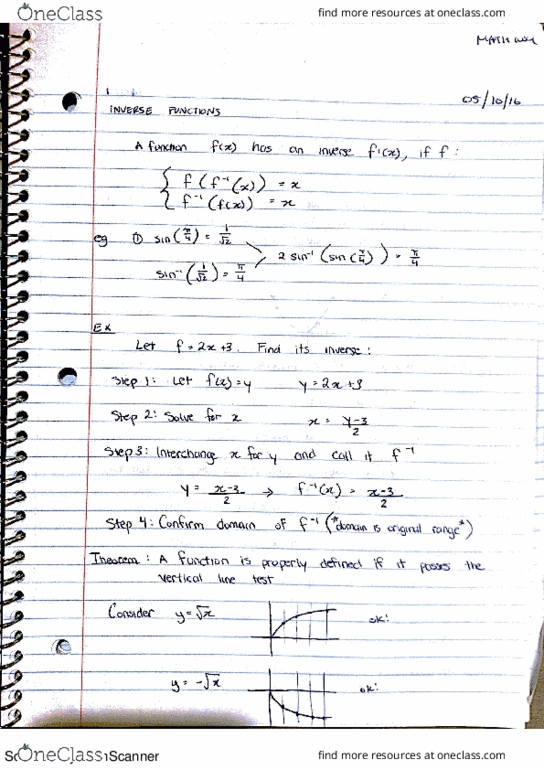 OneClass
find more resources at oneclass.com
MATH
05/10/16
INVERSE FUNCTIONS
A function f(x) has an inverse f⁻¹(x), if f :
{ f(f⁻¹(x)) = x
{ f⁻¹(f(x)) = x
eg ① sin(π/4) = 1/√2
2 sin⁻¹(sin(π/4)) = π/4
sin⁻¹(1/√2) = π/4
Ex
Let f = 2x+3. Find its inverse:
Step 1: Let f(x) = y y = 2x+3
Step 2: Solve for x x = y-3/2
Step 3: Interchange x for y and call it f⁻¹
y = x-3/2 → f⁻¹(x) = x-3/2
Step 4: Confirm domain of f⁻¹ (*domain is original range*)
Theorem: A function is properly defined if it passes the
vertical line test
Consider y = √x ok!
y = -√x ok!
OneClass
Scanner
find more resources at oneclass.com